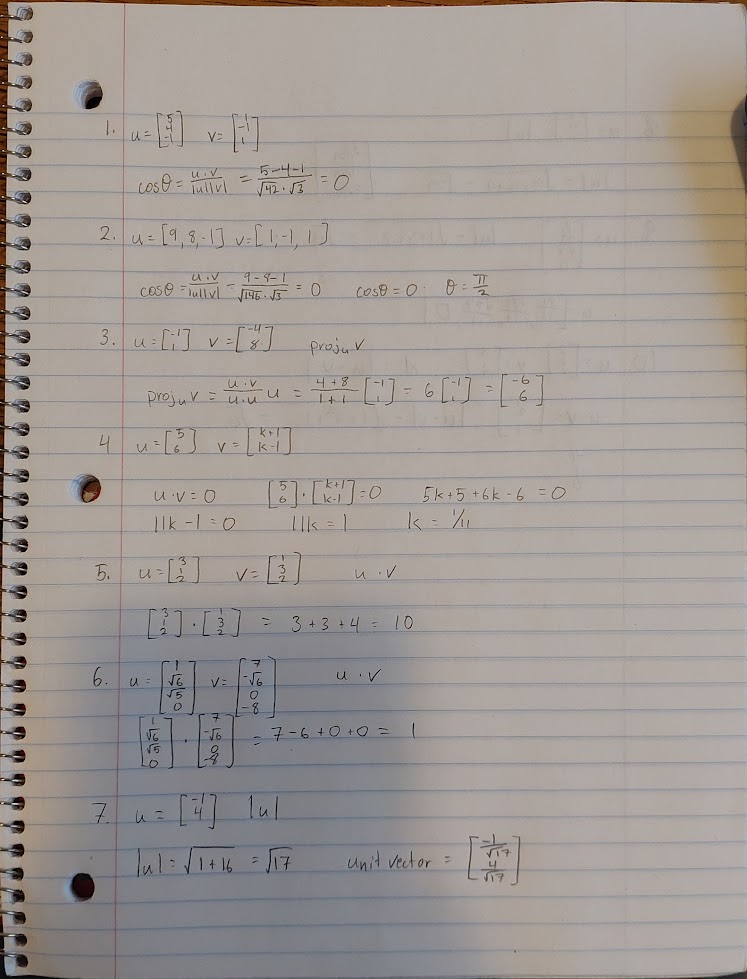 1. u = [5 4 -1] v = [1 -1 1]
cosθ = u·v/|u||v| = 5-4-1/√42·√3 = 0
2. u = [9, 8, -1] v = [1, -1, 1]
cosθ = u·v/|u||v| = 9-8-1/√146·√3 = 0 cosθ = 0 θ = π/2
3. u = [-1 1] v = [-4 8] proj_u v
proj_u v = u·v/u·u u = 4+8/1+1 [-1 1] = 6 [-1 1] = [-6 6]
4 u = [5 6] v = [k+1 k-1]
u·v = 0 [5 6] · [k+1 k-1] = 0 5k+5+6k-6 = 0
11k - 1 = 0 11k = 1 k = 1/11
5. u = [3 1 2] v = [1 3 2] u·v
[3 1 2] · [1 3 2] = 3 + 3 + 4 = 10
6. u = [1 √6 √5 0] v = [7 -√6 0 -8] u·v
[1 √6 √5 0] · [7 -√6 0 -8] = 7-6+0+0 = 1
7. u = [-1 4] |u|
|u| = √1+16 = √17 unit vector = [-1/√17 4/√17]